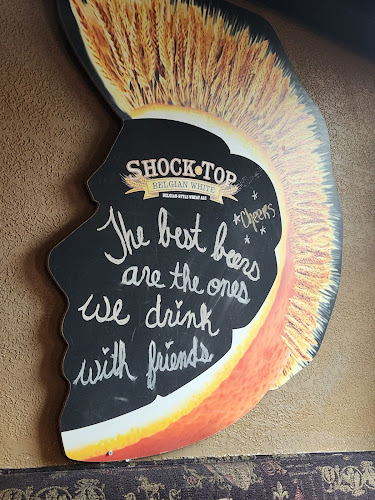 SHOCK TOP
BELGIAN WHITE
BELGIAN-STYLE WHEAT ALE
Cheers
The best beers
are the ones
we drink
with friends